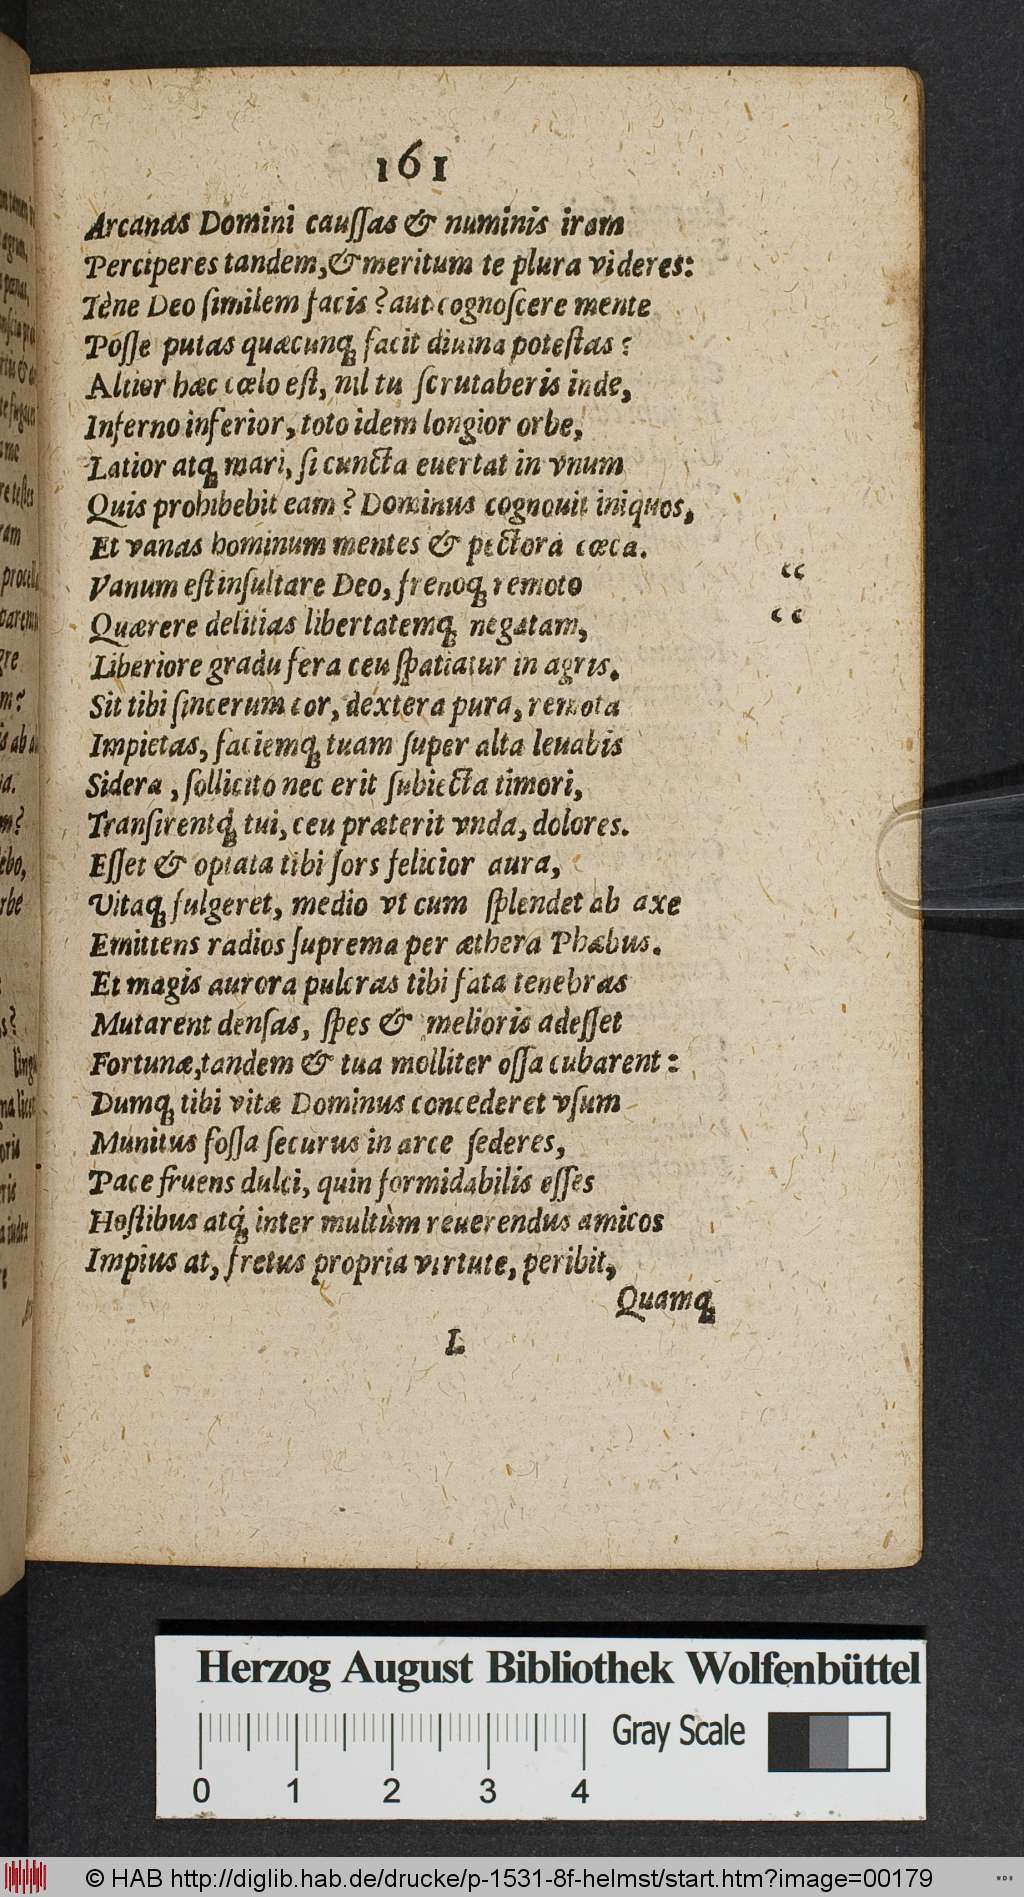 161
Arcanas Domini cauſſas & numinis iram
Perciperes tandem, & meritum te plura videres:
Tène Deo ſimilem facis? aut cognoſcere mente
Poſſe putas quæcunq; facit diuina poteſtas?
Altior hæc cœlo eſt, nil tu ſcrutaberis inde,
Inferno inferior, toto idem longior orbe,
Latior atq; mari, ſi cuncta euertat in vnum
Quis prohibebit eam? Dominus cognouit iniquos,
Et vanas hominum mentes & pectora cœca.
Vanum eſt inſultare Deo, frenoq; remoto “
Quærere delitias libertatemq; negatam, “
Liberiore gradu fera ceu ſpatiatur in agris.
Sit tibi ſincerum cor, dextera pura, remota
Impietas, faciemq; tuam ſuper alta leuabis
Sidera, ſollicito nec erit ſubiecta timori,
Tranſirentq́; tui, ceu præterit vnda, dolores.
Eſſet & optata tibi ſors felicior aura,
Vitaq; fulgeret, medio vt cum ſplendet ab axe
Emittens radios ſuprema per æthera Phæbus.
Et magis aurora pulcras tibi fata tenebras
Mutarent denſas, ſpes & melioris adeſſet
Fortunæ, tandem & tua molliter oſſa cubarent:
Dumq; tibi vitæ Dominus concederet vſum
Munitus foſſa ſecurus in arce ſederes,
Pace fruens dulci, quin formidabilis eſſes
Hoſtibus atq́; inter multùm reuerendus amicos
Impius at, fretus propria virtute, peribit,
Quamq;
L
Herzog August Bibliothek Wolfenbüttel
0 1 2 3 4
Gray Scale
© HAB http://diglib.hab.de/drucke/p-1531-8f-helmst/start.htm?image=00179